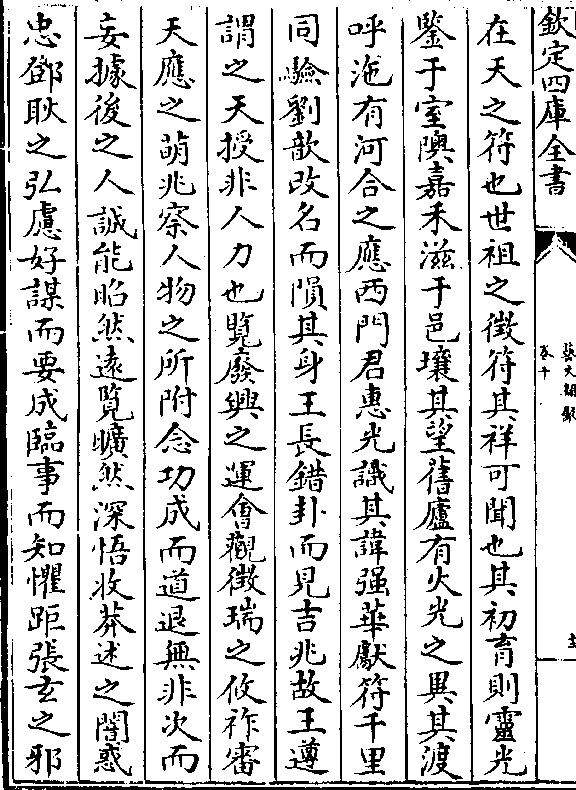 欽定四庫全書
藝文類聚
卷十
在天之符也世祖之徵符其祥可聞也其初育則靈光
鑒于室隩嘉禾滋于邑壤其望舊廬有火光之異其渡
呼沲有河合之應西門君惠光識其諱强華獻符千里
同驗劉歆改名而隕其身王長錯卦而見吉兆故王遵
謂之天授非人力也覽廢興之運會觀徵瑞之攸祚審
天應之萌兆察人物之所附念功成而道退無非次而
妄據後之人誠能昭然遠覽曠然深悟收莽述之闇惑
忠鄧耿之弘慮好謀而要成臨事而知懼距張玄之邪